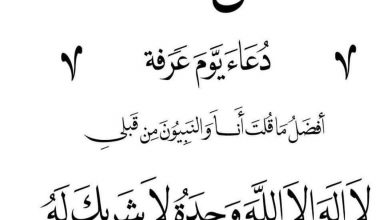 دُعَاءَ يَّومَ عَرَفة
أفضَلُ مَا قُلتَ أنَاَ وَالنَبِيوُنَ مِن قَبلِي
لَا إلَهَ إلَا اللَّهَ وَحِدَهُ لَا شَرِيكَ لَهُ